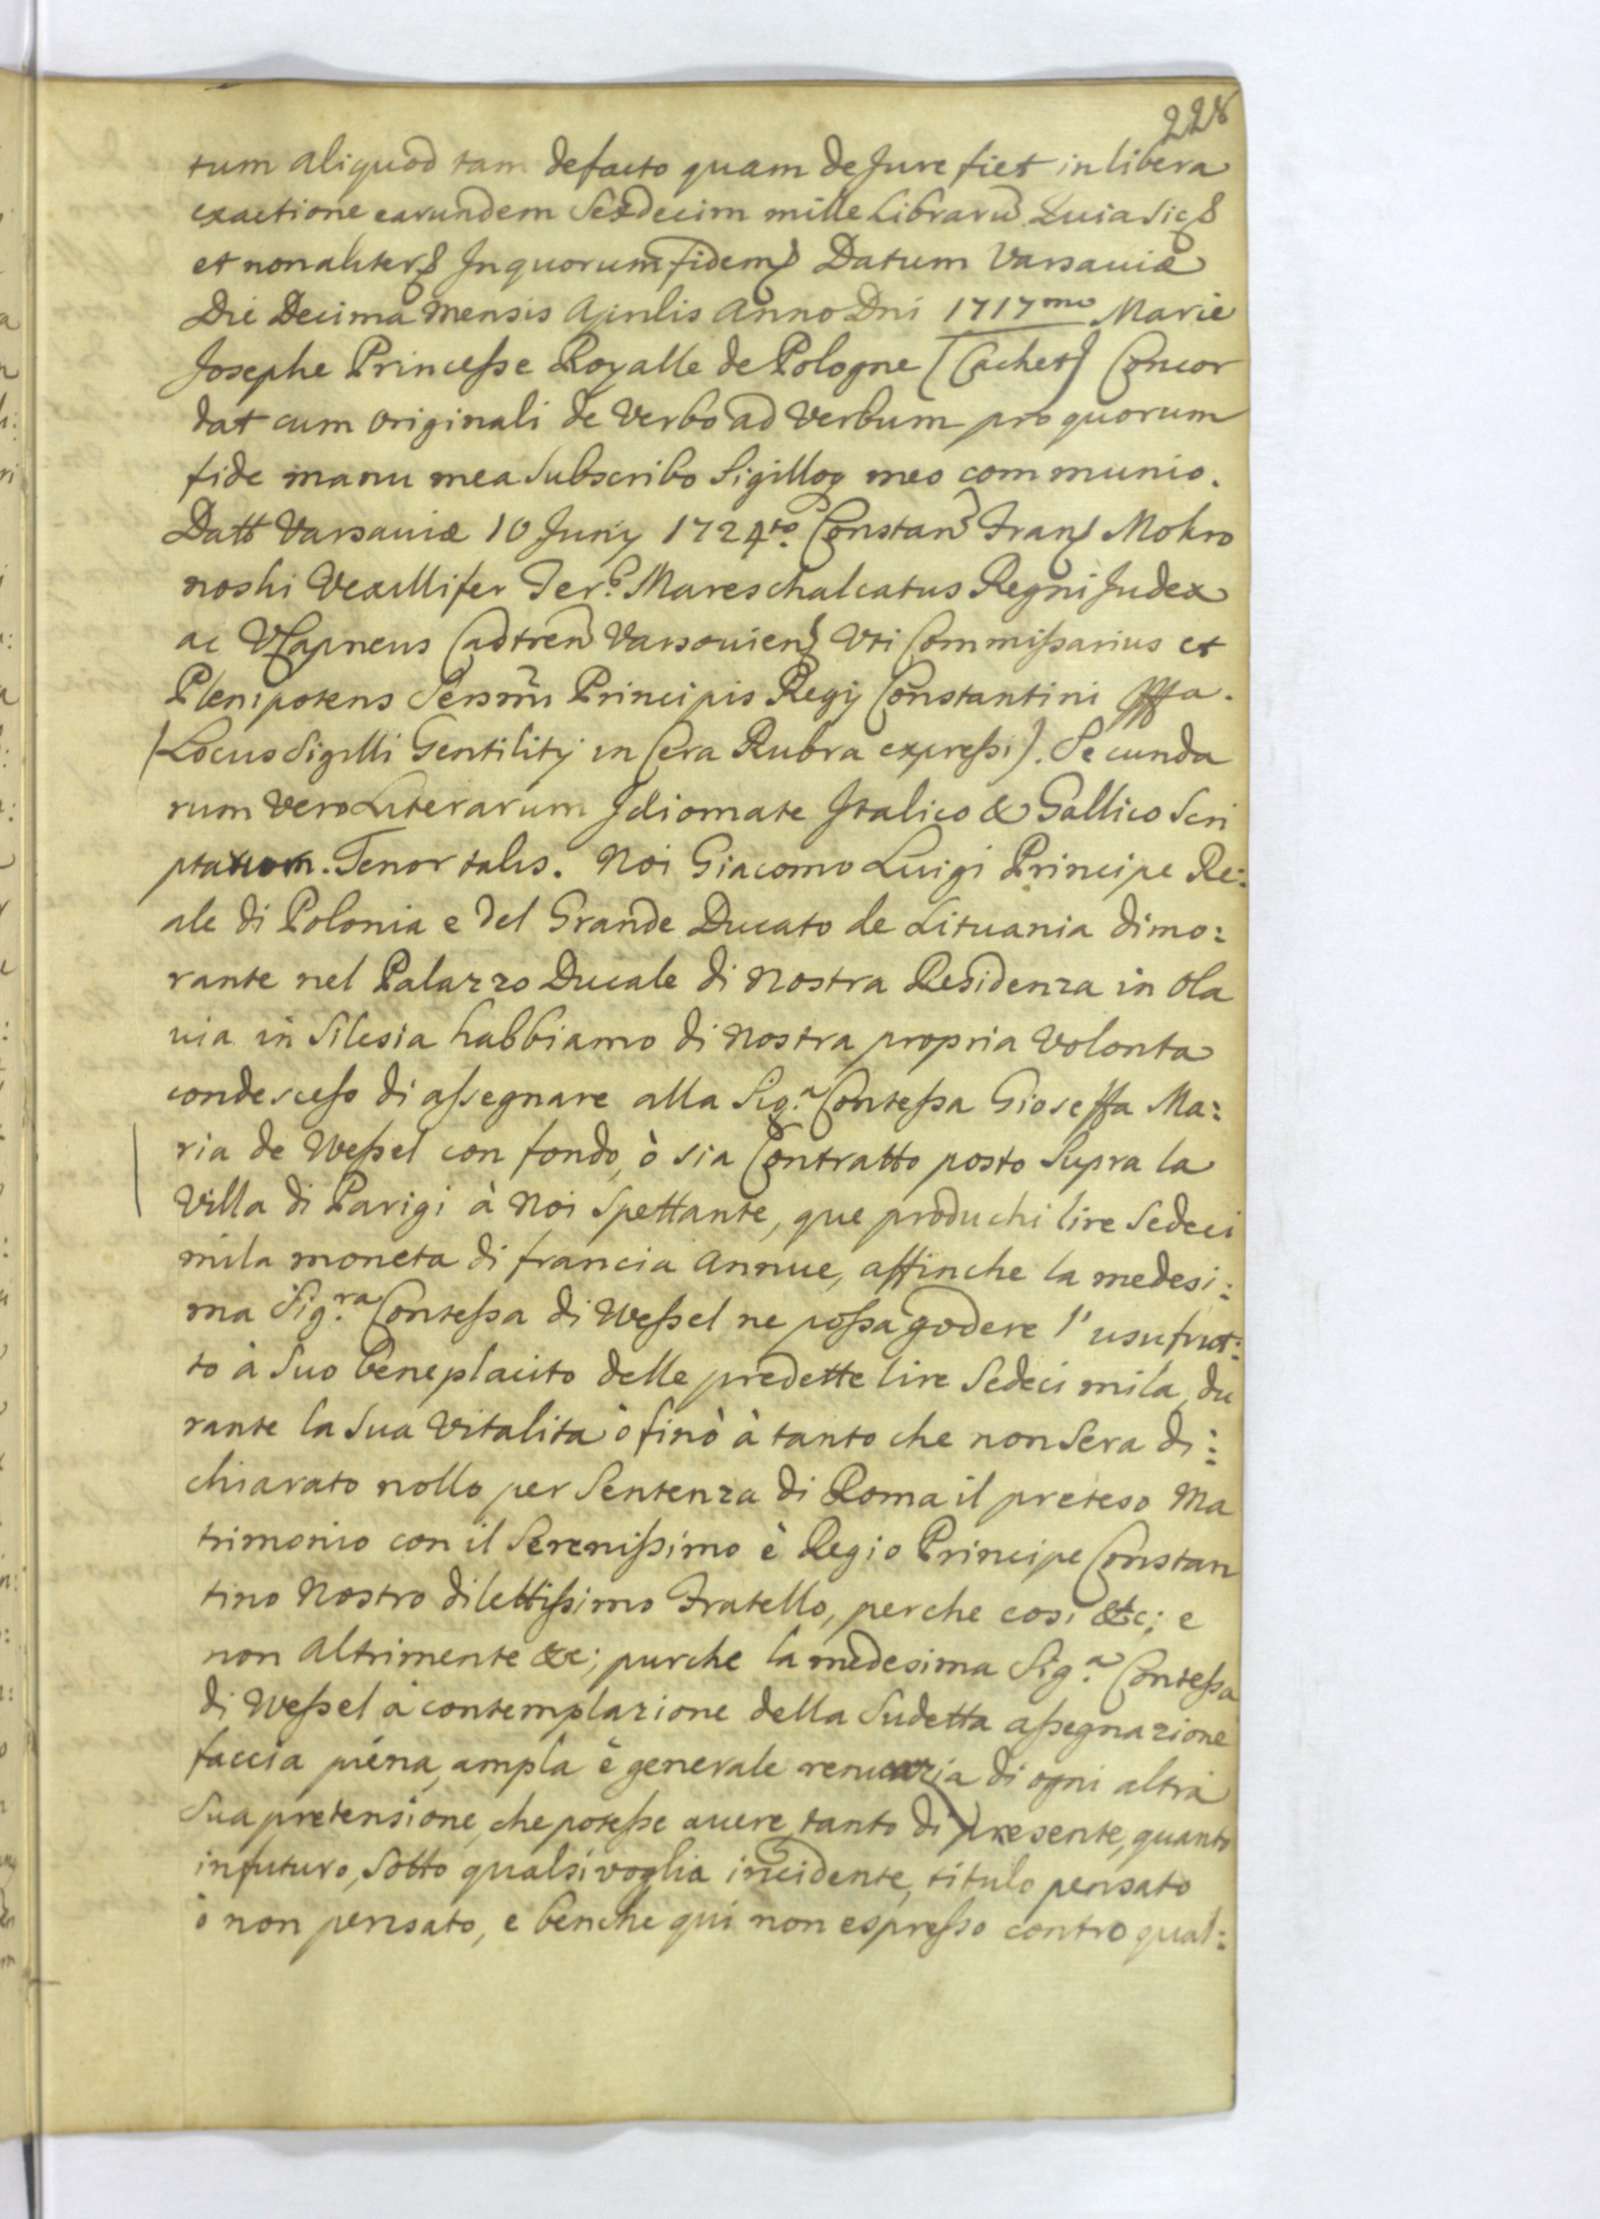 228
tum aliquod tam defacto quam de Jure fiet in libera
exactione earundem Sexdecim mille Librarũ Quia sic
et non aliter Inquorum fidem Datum Varsaviæ
Die Decima Mensis Aprilis Anno Dni 1717mo Marie
Josephe Princesse Royalle de Pologne (Cachet) Concor
dat cum Originali de Verbo ad Verbum pro quorum
fide manu mea Subscribo Sigilloq meo communio.
Datt Varsaviæ 10 Junij 1724to. Constan Franz Mokro
noski Vexillifer Ter. Mareschalcatus Regni Judex
ac Castren Varsovien Uti Commissarius et
Plenipotens Sersmi Principis Regij Constantini
(Locus Sigilli Gentilitij in Cera Rubra expressi). Secunda
rum Vero Literarum Idiomate Italico & Gallico Scri
ptarum. Tenor talis. Noi Giacomo Luigi Principe Re:
ale di Polonia e del Grande Ducato de Lituania dimo:
rante nel Palazzo Ducale di Nostra Residenza in Ola
via in Silesia habbiamo di Nostra propria Volonta
condescesso di assegnare alla Sig.a Contessa Gioseffa Ma:
ria de Wessel con fondo, ò sia Contratto posto Supra la
Villa di Parigi à Noi Spettante, que produchi lire Sedeci
mila moneta di francia Annue, affinche la medesi:
ma Sig.ra Contessa di Wessel ne possa godere l'usufrut:
to à Suo beneplacito delle predette lire Sedeci mila, du
rante la Sua Vitalita ò finò à tanto che non Sera di:
chiarato nollo per Sentenza di Roma il preteso Ma
trimonio con il Serenissimo è Regio Principe Constan
tino Nostro dilettissimo Fratello, perche cosi &tc; e
non Altrimente &c; purche la medesima Sig.a Contessa
di Wessel à contemplazione della Sudetta assegnazione
faccia piéna, ampla è generale di ogni altra
Sua pretensione, che potesse avere, tanto di presente, quanto
in futuro, Sotto qualsivoglia incidente, titulo pensato
ò non pensato, e benche qui non espresso contro qual: